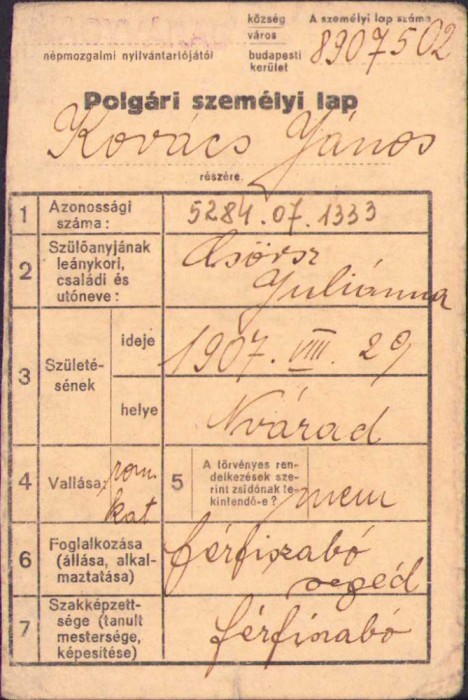 község
A személyi lap száma
város
népmozgalmi nyilvántartójától
budapesti
kerület
8907502
Polgári személyi lap
Kovács János
részére.
1 Azonossági
száma:
5284.07.1333
2 Szülőanyjának
leánykori,
családi és
utóneve:
Csörsz
Juliánna
3 Születé-
sének
ideje
1907. VIII. 29
helye
Nvárad
4 Vallása:
rom.
kat
5 A törvényes ren-
delkezések sze-
rint zsidónak te-
kintendő-e?
nem
6 Foglalkozása
(állása, alkal-
maztatása)
férfiszabó
segéd
7 Szakképzett-
sége (tanult
mestersége,
képesítése)
férfiszabó